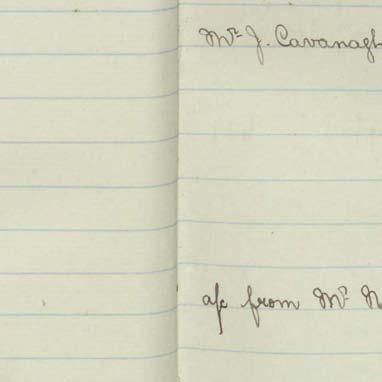 Mr. J. Cavanagh
a/c from Mr.